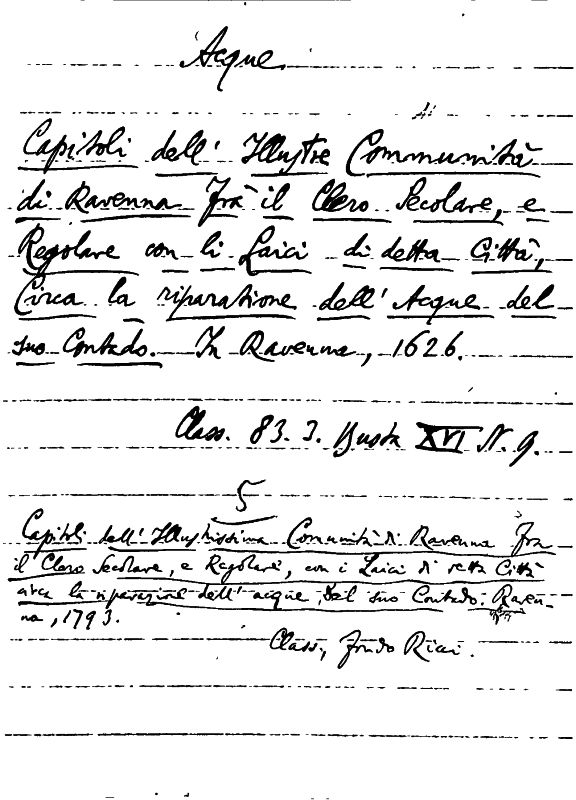 Acque
Capitoli dell' Illustre Communità
di Ravenna Frà il Clero Secolare, e
Regolare con li Laici di detta Città,
Circa la riparatione dell' Acque del
suo Contado. In Ravenna, 1626.
Class. 83. 3. Busta XVI N. 9.
5
Capitoli dell' Illustrissima Comunità di Ravenna Fra
il Clero Secolare, e Regolare, con i Laici di detta Città
circa la riparazione dell' acque, del suo Contado. Raven-
na, 1793.
Class, fondo Ricci.